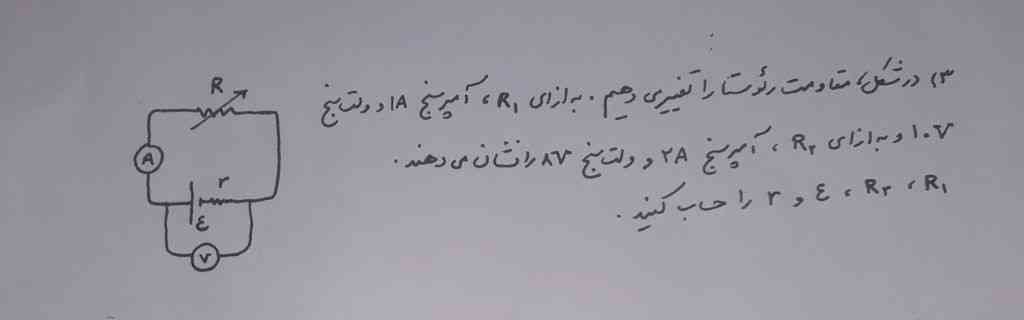 ۳) در شکل، مقاومت رئوستا را تغییر می دهیم. به ازای R₁، آمپرسنج ۱A و ولت سنج
۱۰V و به ازای R₂، آمپرسنج ۲A و ولت سنج ۸V را نشان می دهند.
R₁، R₂، ε و r را حساب کنید.
R
A
r
ε
V